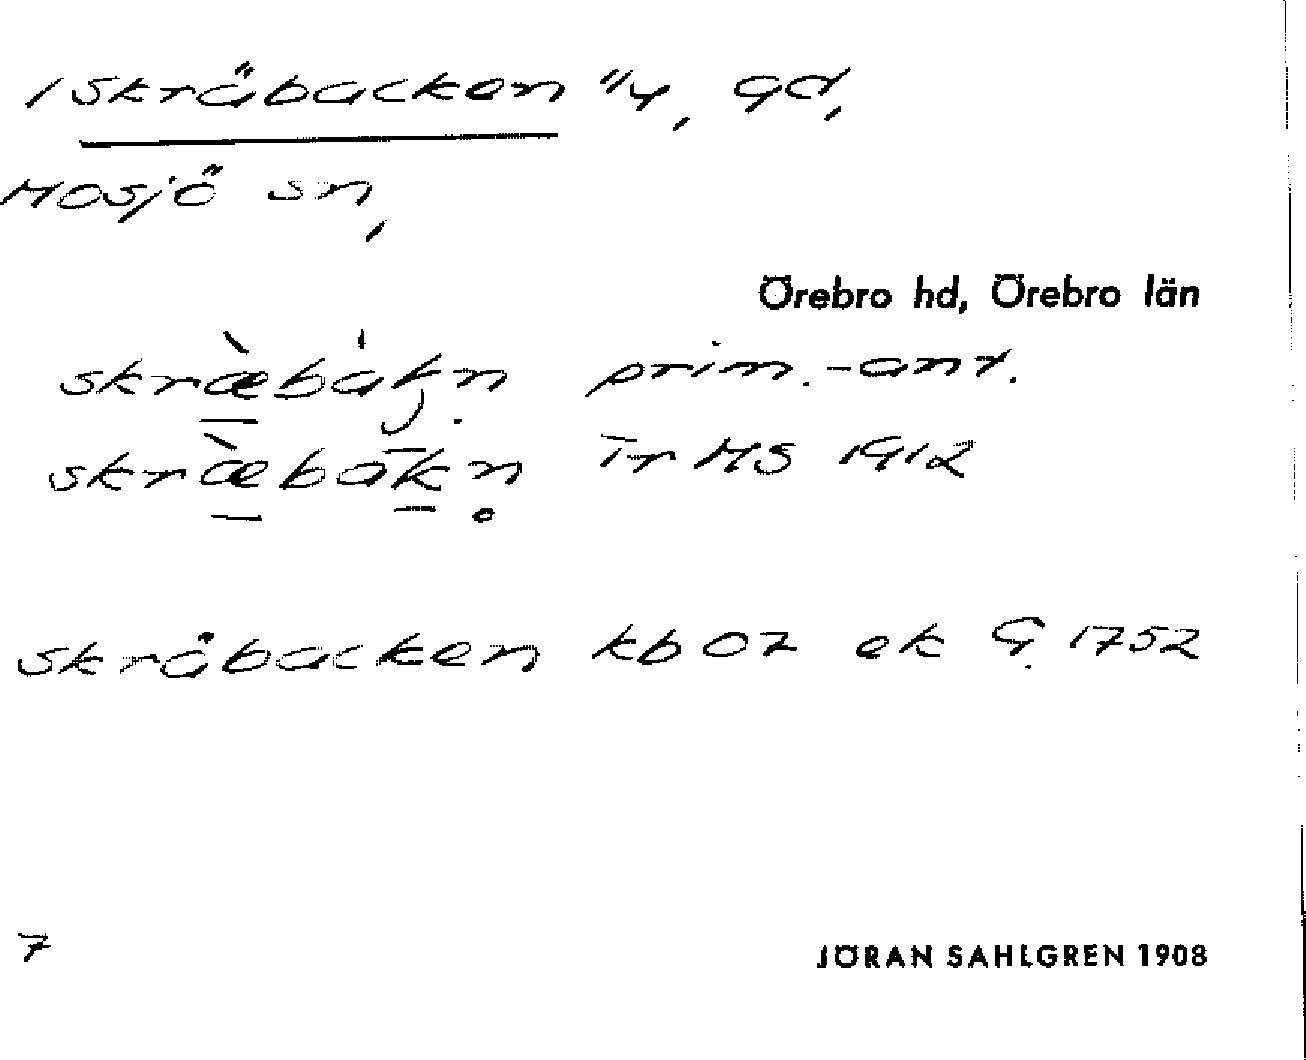 1 Skräbacken "4, gd,
Mosjö sn,
Örebro hd, Örebro län
skræ̀bákn̥ prim.-ant.
skræ̀bākn̥ Tr MS 1912
Skråbacken kb 07 ek G. 1752
7
JÖRAN SAHLGREN 1908